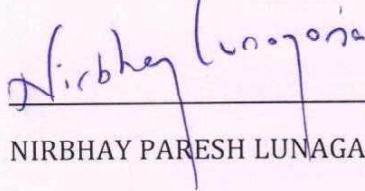 Nirbhay Lunagaria
NIRBHAY PARESH LUNAGA